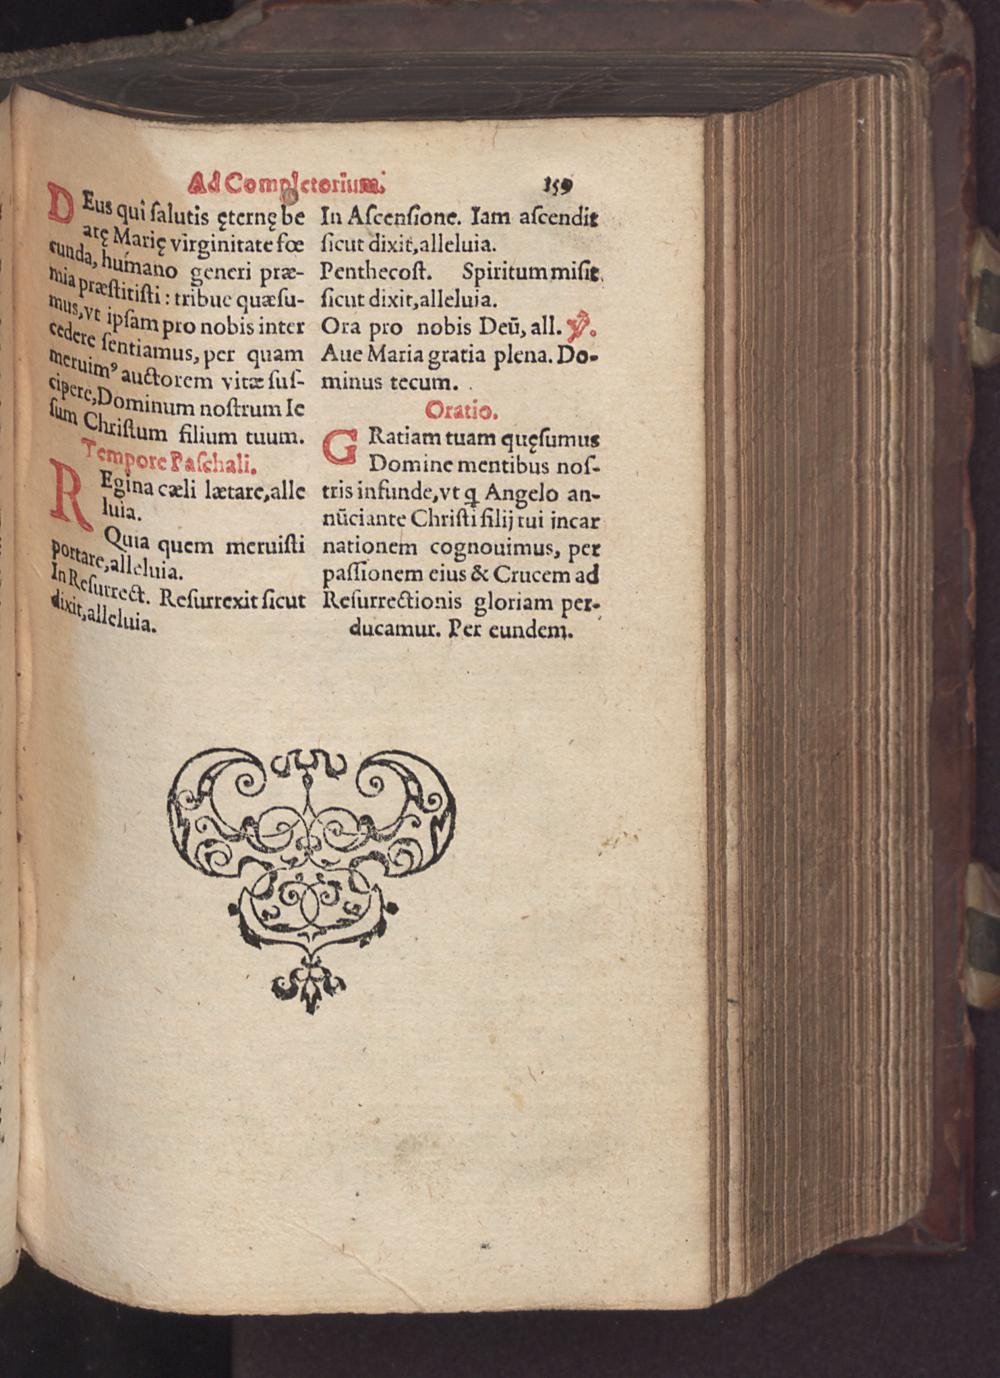 Ad Completorium. 159
DEus qui ſalutis ęternę be
atę Marię virginitate fœ
cunda, humano generi præ-
mia præſtitiſti : tribue quæſu-
mus, vt ipſam pro nobis inter
cedere ſentiamus, per quam
meruimꝰ auctorem vitæ ſuſ-
cipere, Dominum noſtrum Ie
ſum Chriſtum filium tuum.
Tempore Paſchali.
REgina cæli lætare, alle
luia.
Quia quem meruiſti
portare, alleluia.
In Reſurrect. Reſurrexit ſicut
dixit, alleluia.
In Aſcenſione. Iam aſcendit
ſicut dixit, alleluia.
Penthecoſt. Spiritum miſit
ſicut dixit, alleluia.
Ora pro nobis Deū, all. ℣.
Aue Maria gratia plena. Do-
minus tecum.
Oratio.
GRatiam tuam quęſumus
Domine mentibus noſ-
tris infunde, vt q Angelo an-
nūciante Chriſti filij tui incar
nationem cognouimus, per
paſſionem eius & Crucem ad
Reſurrectionis gloriam per-
ducamur. Per eundem.